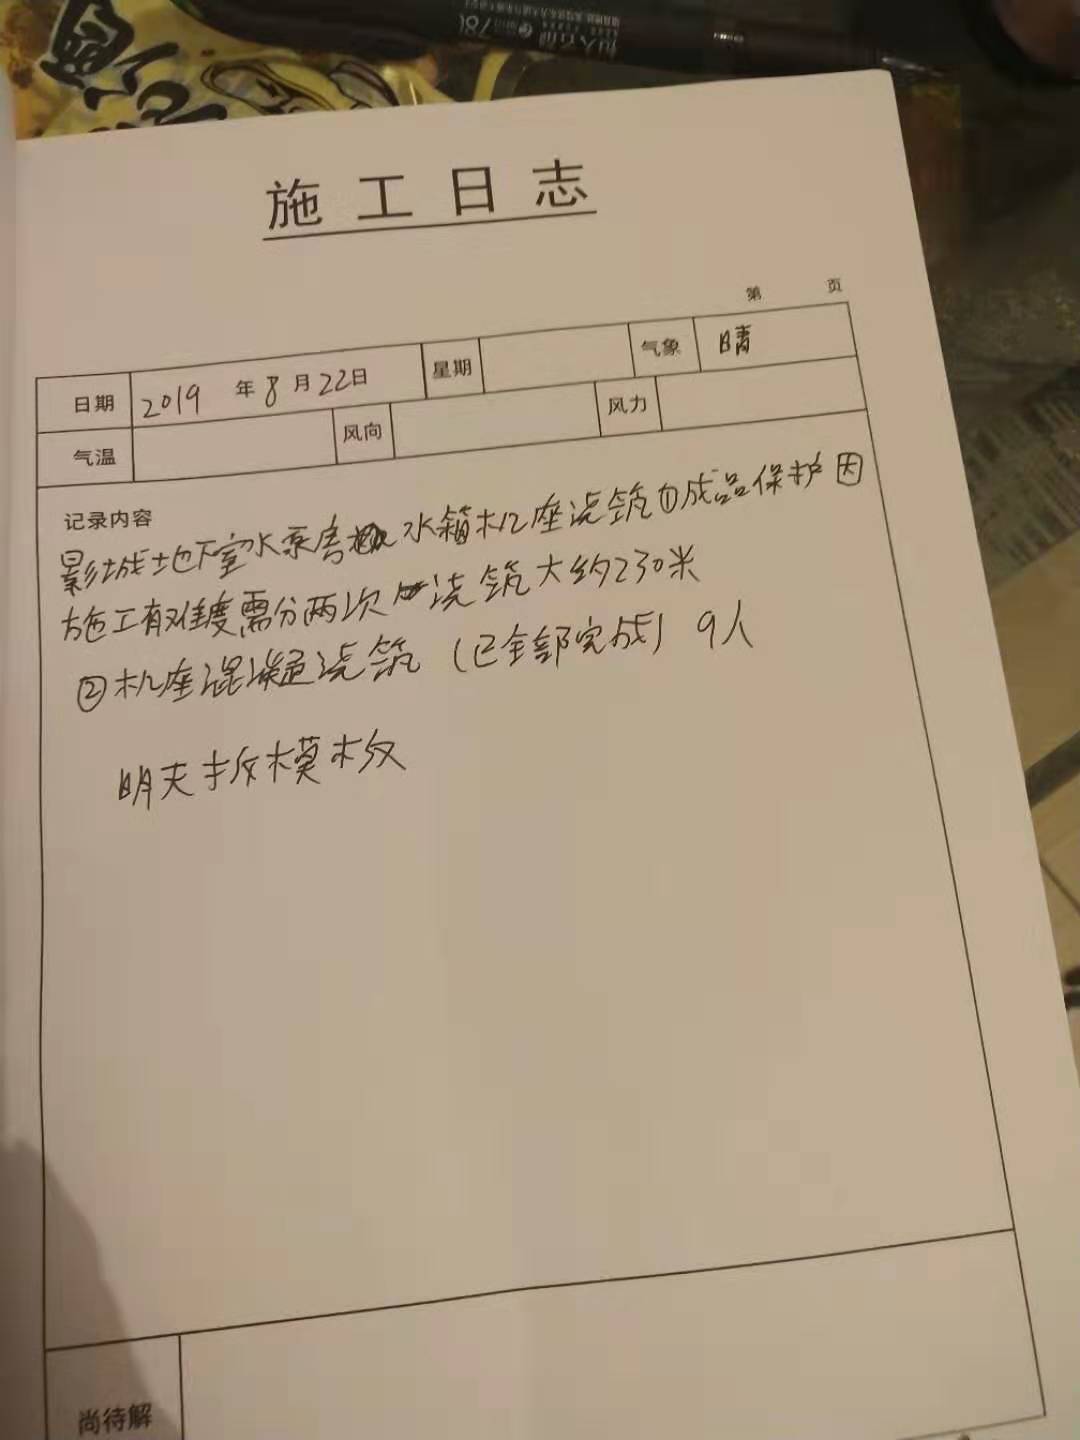 施工日志
第 页
日期 2019 年 8 月 22日 星期 气象 晴
气温 风向 风力
记录内容
影城地下室水泵房 水箱机座浇筑①成品保护因
施工有难度需分两次 浇筑大约230米
②机座混凝土浇筑(已全部完成) 9人
明天拆模板
尚待解